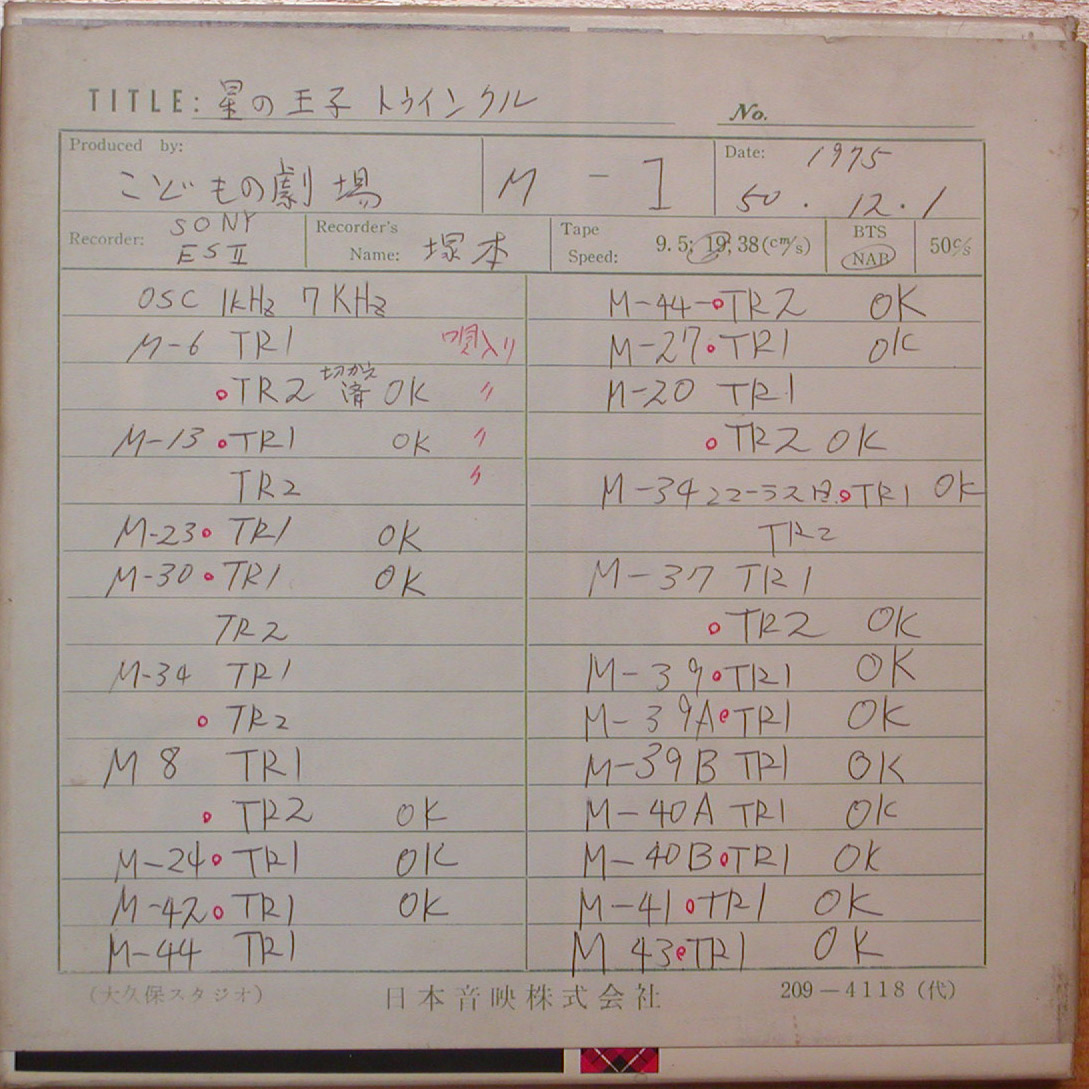 TITLE: 星の王子 トゥインクル
No.
Produced by: こどもの劇場
M-1
Date: 1975
50.12.1
Recorder: SONY ESII
Recorder's Name: 塚本
Tape Speed: 9.5; 19; 38(cm/s)
BTS
NAB
50c/s
OSC 1KHz 7KHz
M-6 TR1 唄入り
TR2 切かえ済 OK 〃
M-13 TR1 OK 〃
TR2 〃
M-23 TR1 OK
M-30 TR1 OK
TR2
M-34 TR1
TR2
M 8 TR1
TR2 OK
M-24 TR1 OK
M-42 TR1 OK
M-44 TR1
M-44 TR2 OK
M-27 TR1 OK
M-20 TR1
TR2 OK
M-34 TR1 OK
TR2
M-37 TR1
TR2 OK
M-39 TR1 OK
M-39A TR1 OK
M-39B TR1 OK
M-40A TR1 OK
M-40B TR1 OK
M-41 TR1 OK
M 43 TR1 OK
(大久保スタジオ)
日本音映株式会社
209-4118(代)